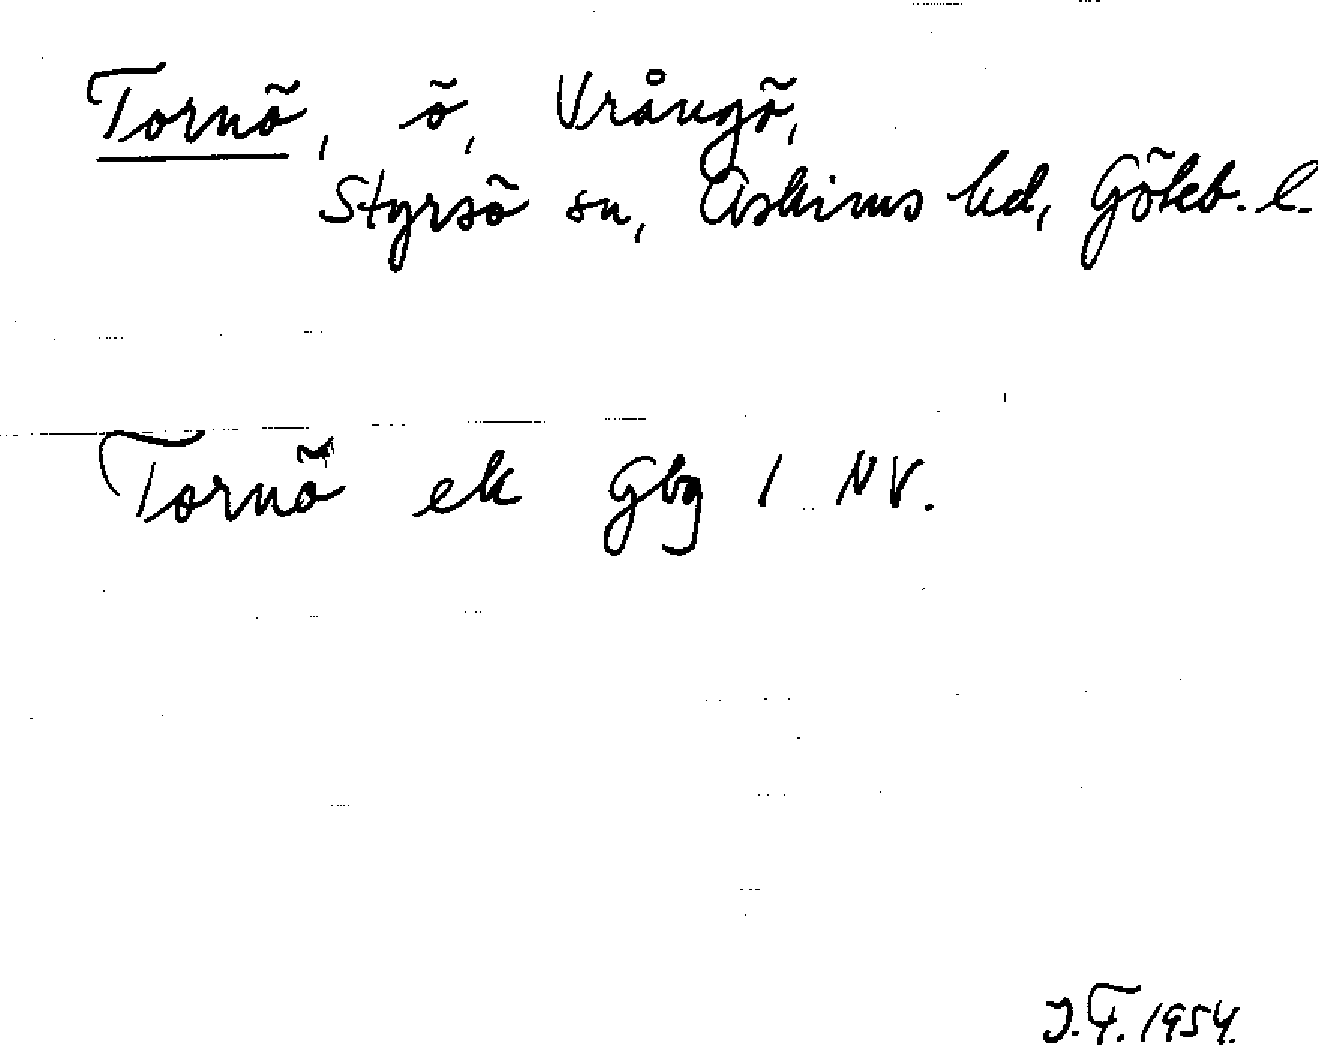 Tornö, ö, Vrångö,
Styrsö sn, Askims hd, Göteb. l.
Tornö ek Gbg 1 NV.
J.F. 1954.